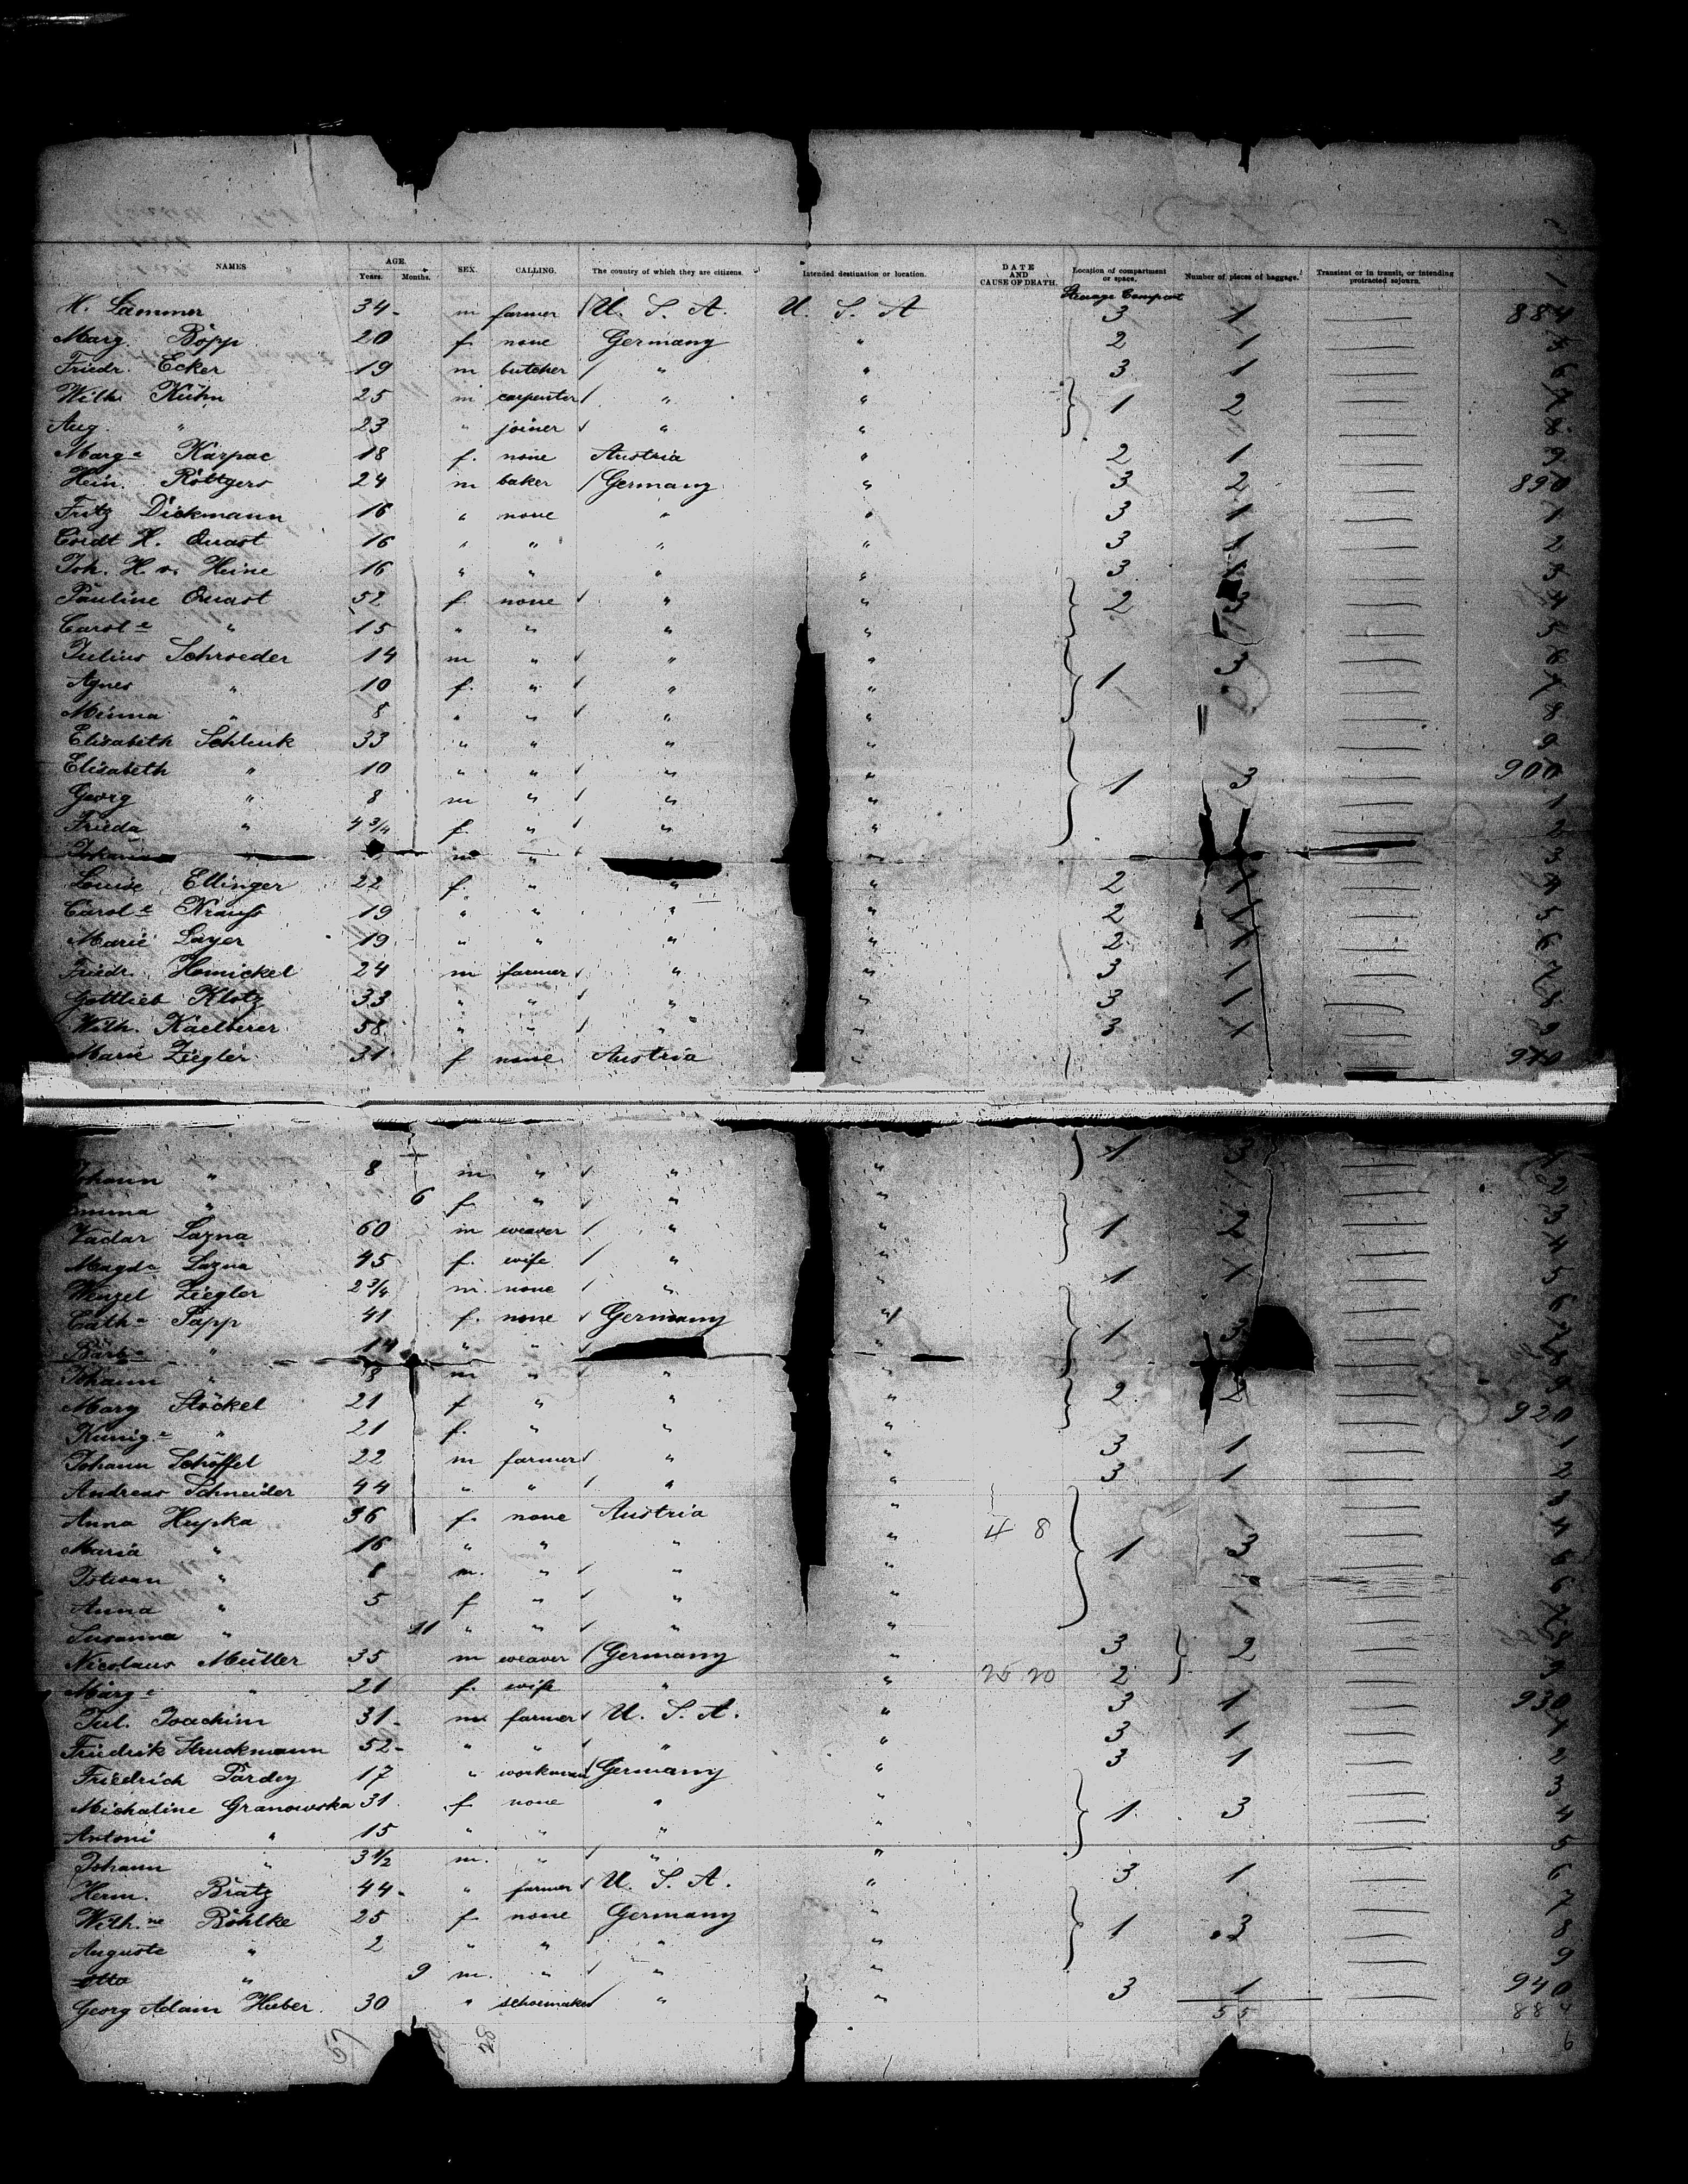 NAMES AGE. Years. Months. SEX. CALLING. The country of which they are citizens. Intended destination or location. DATE AND CAUSE OF DEATH. Location of compartment or space. Number of pieces of baggage. Transient or in transit, or intending protracted sojourn.
Steerage Compart
H. Lämmer 34 - m farmer U. S. A. U. S. A 3 1 884
Marg. Bopp 20 f. none Germany " 2 1 5
Friedr. Ecker 19 m butcher " " 3 1 6
Wilh. Kühn 25 m carpenter " " 1 2 7
Aug. " 23 " joiner " " 8
Marg.a Karpac 18 f. none Austria " 2 1 9
Hein. Röttgers 24 m baker Germany " 3 2 890
Fritz Dickmann 16 " none " " 3 1 1
Cordt H. Quast 16 " " " " 3 1 2
Joh. H. v. Heine 16 " " " " 3 1 3
Pauline Quast 52 f none " " 2 3 4
Carol.e " 15 " " " " 5
Julius Schroeder 14 m " " " 1 3 6
Agnes " 10 f. " " " 7
Minna " 8 " " " " 8
Elisabeth Schlenk 33 " " " " 9
Elisabeth " 10 " " " " 1 3 900
Georg " 8 m " " " 1
Frieda " 4 3/4 f. " " " 2
m " " 3
Louise Ellinger 22 f. " " " 2 1 4
Carol.e Krauss 19 " " " " 2 1 5
Marie Layer 19 " " " " 2 1 6
Friedr. Homickel 24 m farmer " " 3 1 7
Gottlieb Klotz 33 " " " " 3 1 8
Wilh. Kaelberer 58 " " " " 3 1 9
Marie Ziegler 31 f none Austria " 910
1 3 1
Johann " 8 m " " " 2
Emma " 6 f. " " " 3
Vaclav Lazna 60 m weaver " " 1 2 4
Magd.a Lazna 45 f. wife " " 5
Wenzel Ziegler 2 3/4 m. none " " 1 1 6
Cath.a Papp 41 f. none Germany " 1 3 7
Barb.a " 14 " " " 8
Johann " 8 m " " " 9
Marg Stöckel 21 f " " " 2 2 920
Kunig.e " 21 f. " " " 1
Johann Schöffel 22 m farmer " " 3 1 2
Andreas Schneider 44 " " " " 3 1 3
Anna Hupka 36 f. none Austria " 4 8 1 3 4
Maria " 16 " " " " 5
Istvan " 8 m. " " " 6
Anna " 5 f " " " 7
Susanna " 11 " " " " 8
Nicolaus Müller 35 m weaver Germany " 3 2 9
Marg.e " 21 f. wife " " 25 20 2 930
Jul. Joachim 31 - m farmer U. S. A. " 3 1 1
Friedrik Struckmann 52 - " " " " 3 1 2
Friedrich Pardey 17 " workman Germany " 3 1 3
Michaline Granowska 31 f none " " 1 3 4
Antoni " 15 " " " " 5
Johann " 3 1/2 m. " " " 6
Herm. Bratz 44 - " farmer U. S. A. " 3 1 7
Wilh.ne Böhlke 25 f none Germany " 1 3 8
Auguste " 2 " " " " 9
Otto " 9 m. " " "
Georg Adam Huber 30 " schoemaker " " 3 1 940
55 884
28 6